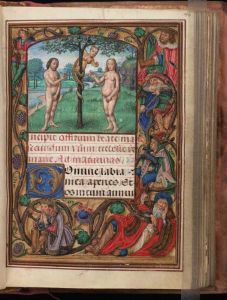 Incipit officium beate ma
secundum usum ecclesie ro
mane. Ad matutinas.
Domine labia
mea aperies Et
os meum annun